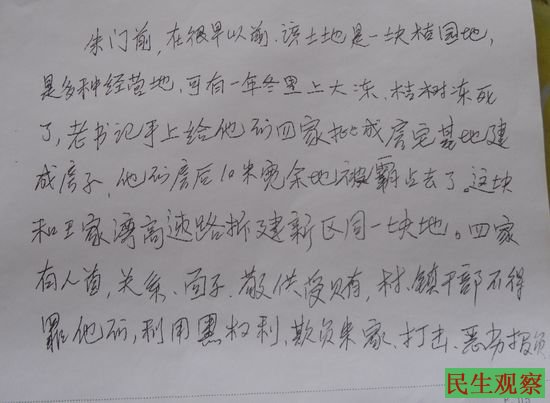 朱门前，在很早以前，该土地是一块桔园地，
是多种经营地，可有一年冬里上大冻、桔树冻死
了，老书记手上给他们四家批成房宅基地建
成房子，他们房后10米宽余地被霸占去了。这块
和王家湾高速路拆建新区同一块地。四家
有人直，关系、面子、敬供受贿，村、镇干部不得
罪他们，利用黑权利，欺负朱家、打击、恶劣报
民生观察